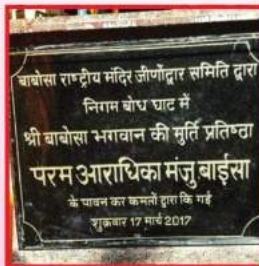 बाबोसा राष्ट्रीय मंदिर जीर्णोद्वार समिति द्वारा
निगम बोध घाट में
श्री बाबोसा भगवान की मुर्ति प्रतिष्ठा
परम आराधिका मंजु बाईसा
के पावन कर कमलों द्वारा कि गई
शुक्रवार 17 मार्च 2017